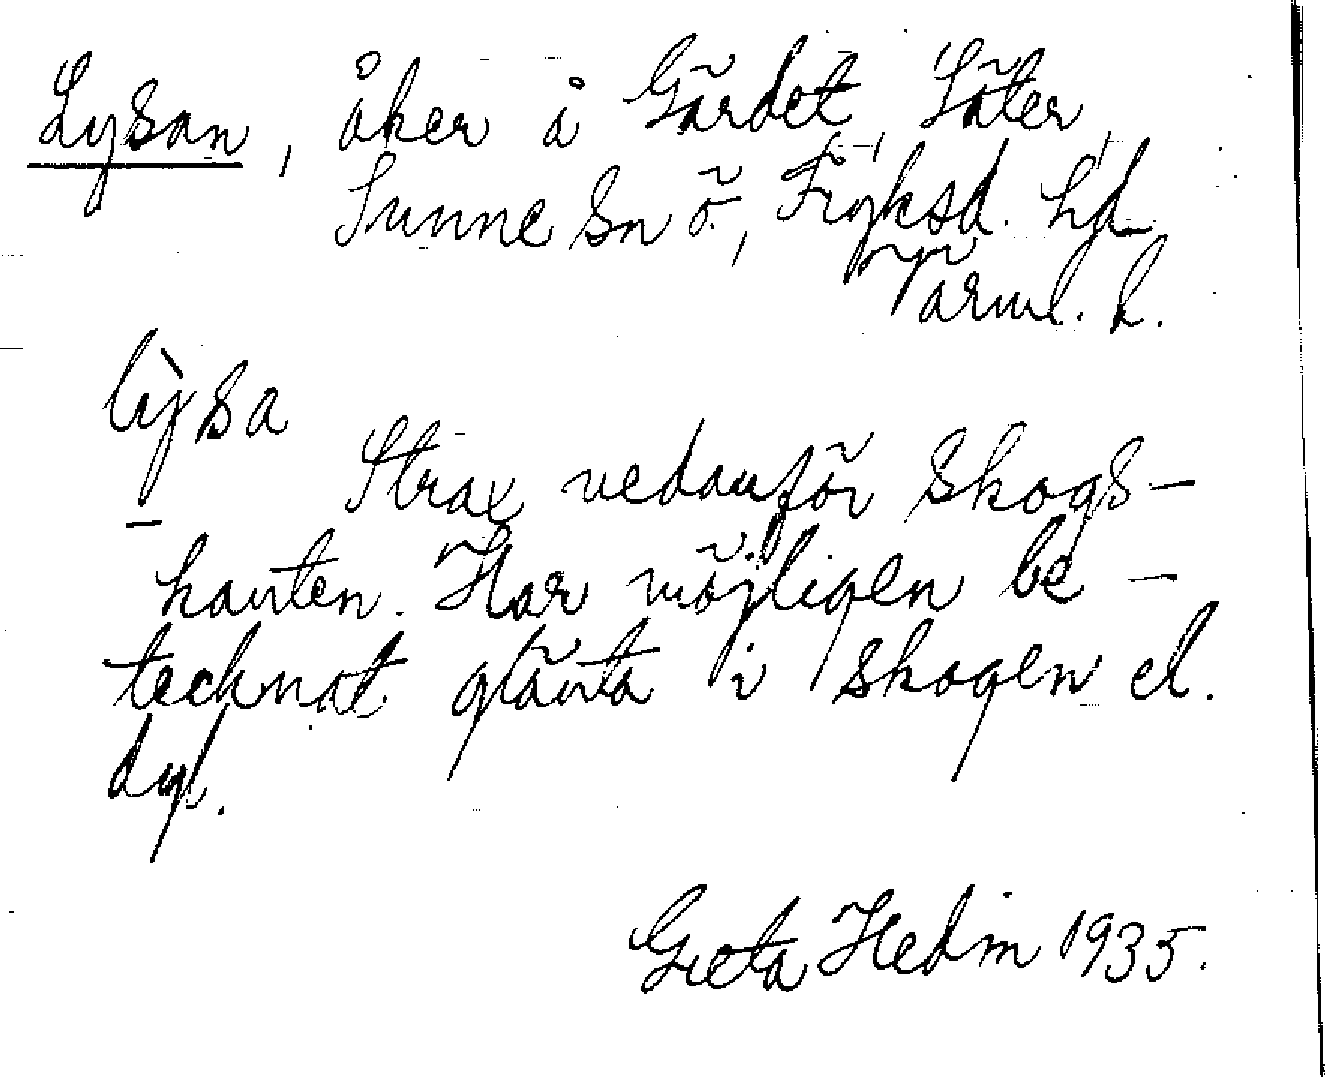 Lysan, åker å Gärdet, Säter,
Sunne sn ö., Fryksd. hd
Värml. l.
lỳsa
Strax nedanför skogs-
kanten. Har möjligen be-
tecknat glänta i skogen el.
dyl.
Greta Hedin 1935.